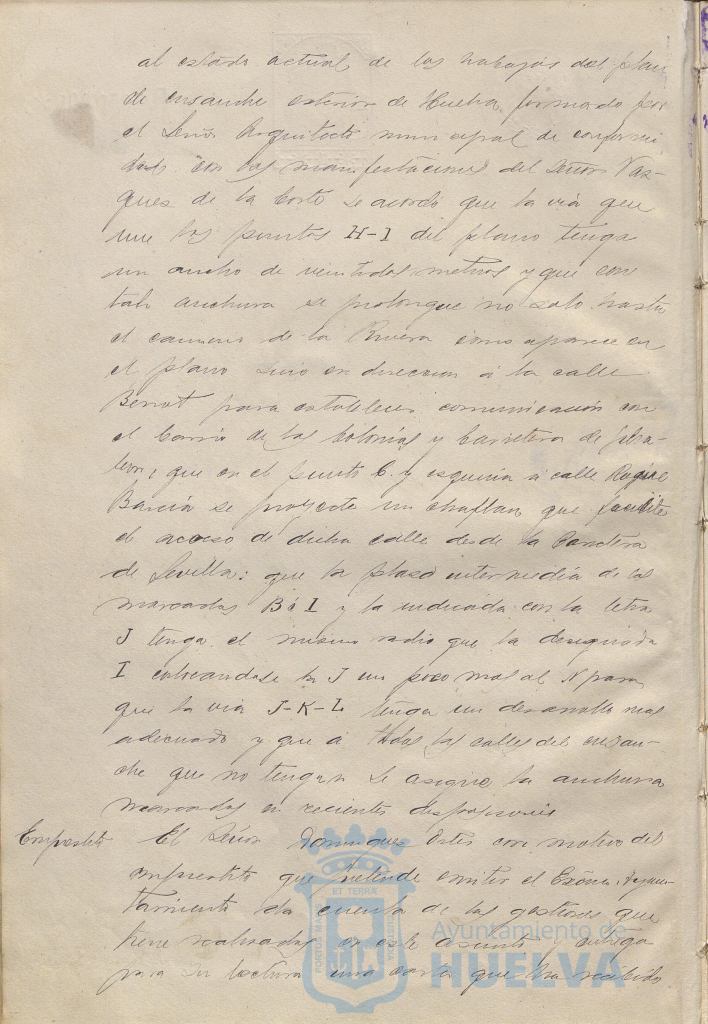 al estado actual de los trabajos del plan
de ensanche exterior de Huelva, formado por
el Señor Arquitecto municipal de conformi-
dad con las manifestaciones del Señor Vaz-
quez de la Corte se acordó que la via que
une los puntos H-I del plano tenga
un ancho de veintidos metros y que con
tal anchura se prolongue no solo hasta
el camino de la Rivera como aparece en
el plano sino en direccion á la calle
para establecer comunicación con
el barrio de las Colonias y Carretera de
que en el punto C. y esquina á calle Roque
Barcia se proyecte un chaflan que facilite
el acceso de dicha calle desde la Carretera
de Sevilla: que la plaza intermedia de las
marcadas B é I y la indicada con la letra
J tenga el mismo radio que la designada
I colocandose la J un poco mas al N para
que la via J-K-L tenga un desarrollo mas
adecuado y que á todas las calles del ensan-
che que no tengan se asigne la anchura
marcada en recientes disposiciones
Empréstito El Señor Dominguez Ortes con motivo del
empréstito que pretende emitir el Excmo. Ayun-
tamiento da cuenta de las gestiones que
tiene realizadas en este asunto y entrega
para su lectura una carta que ha recibido
PORTUS MARIS ET TERRÆ CUSTODIA
Ayuntamiento de
HUELVA